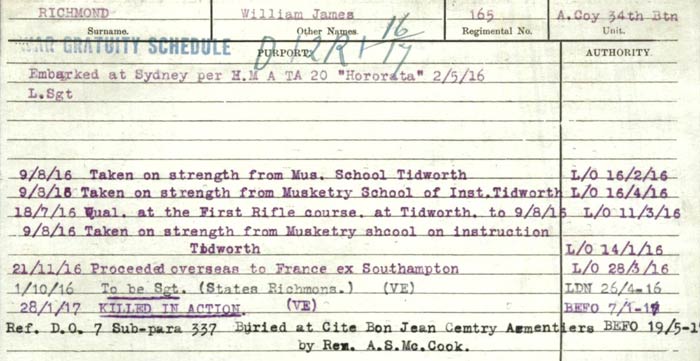 RICHMOND William James 165 A.Coy 34th Btn
Surname. Other Names. Regimental No. Unit.
WAR GRATUITY SCHEDULE 16/17
PURPORT. AUTHORITY.
Embarked at Sydney per H.M A TA 20 "Hororata" 2/5/16
L.Sgt
9/8/16 Taken on strength from Mus. School Tidworth L/O 16/2/16
9/8/16 Taken on strength from Musketry School of Inst.Tidworth L/O 16/4/16
18/7/16 Qual. at the First Rifle course. at Tidworth. to 9/8/16 L/O 11/3/16
9/8/16 Taken on strength from Musketry shcool on instruction
Tidworth L/O 14/1/16
21/11/16 Proceeded overseas to France ex Southampton L/O 28/3/16
1/10/16 To be Sgt. (States Richmons.) (VE) LDN 26/4-16
28/1/17 KILLED IN ACTION. (VE) BEFO 7/1-17
Ref. D.O. 7 Sub-para 337 Buried at Cite Bon Jean Cemtry Armentiers BEFO 19/5-1
by Rem. A.S.Mc.Cook.